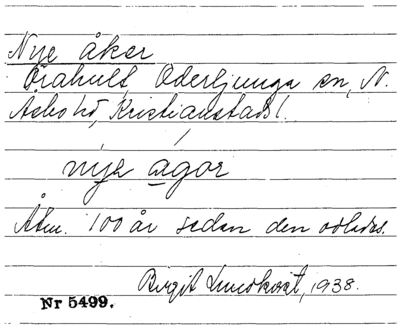 Nye åker
Örahult, Oderljunga sn, N.
Åsbo hd, Kristianstads l.
nye agor
Åtm. 100 år sedan den odlades.
Birgit Lundkvist, 1938.
Nr 5499.